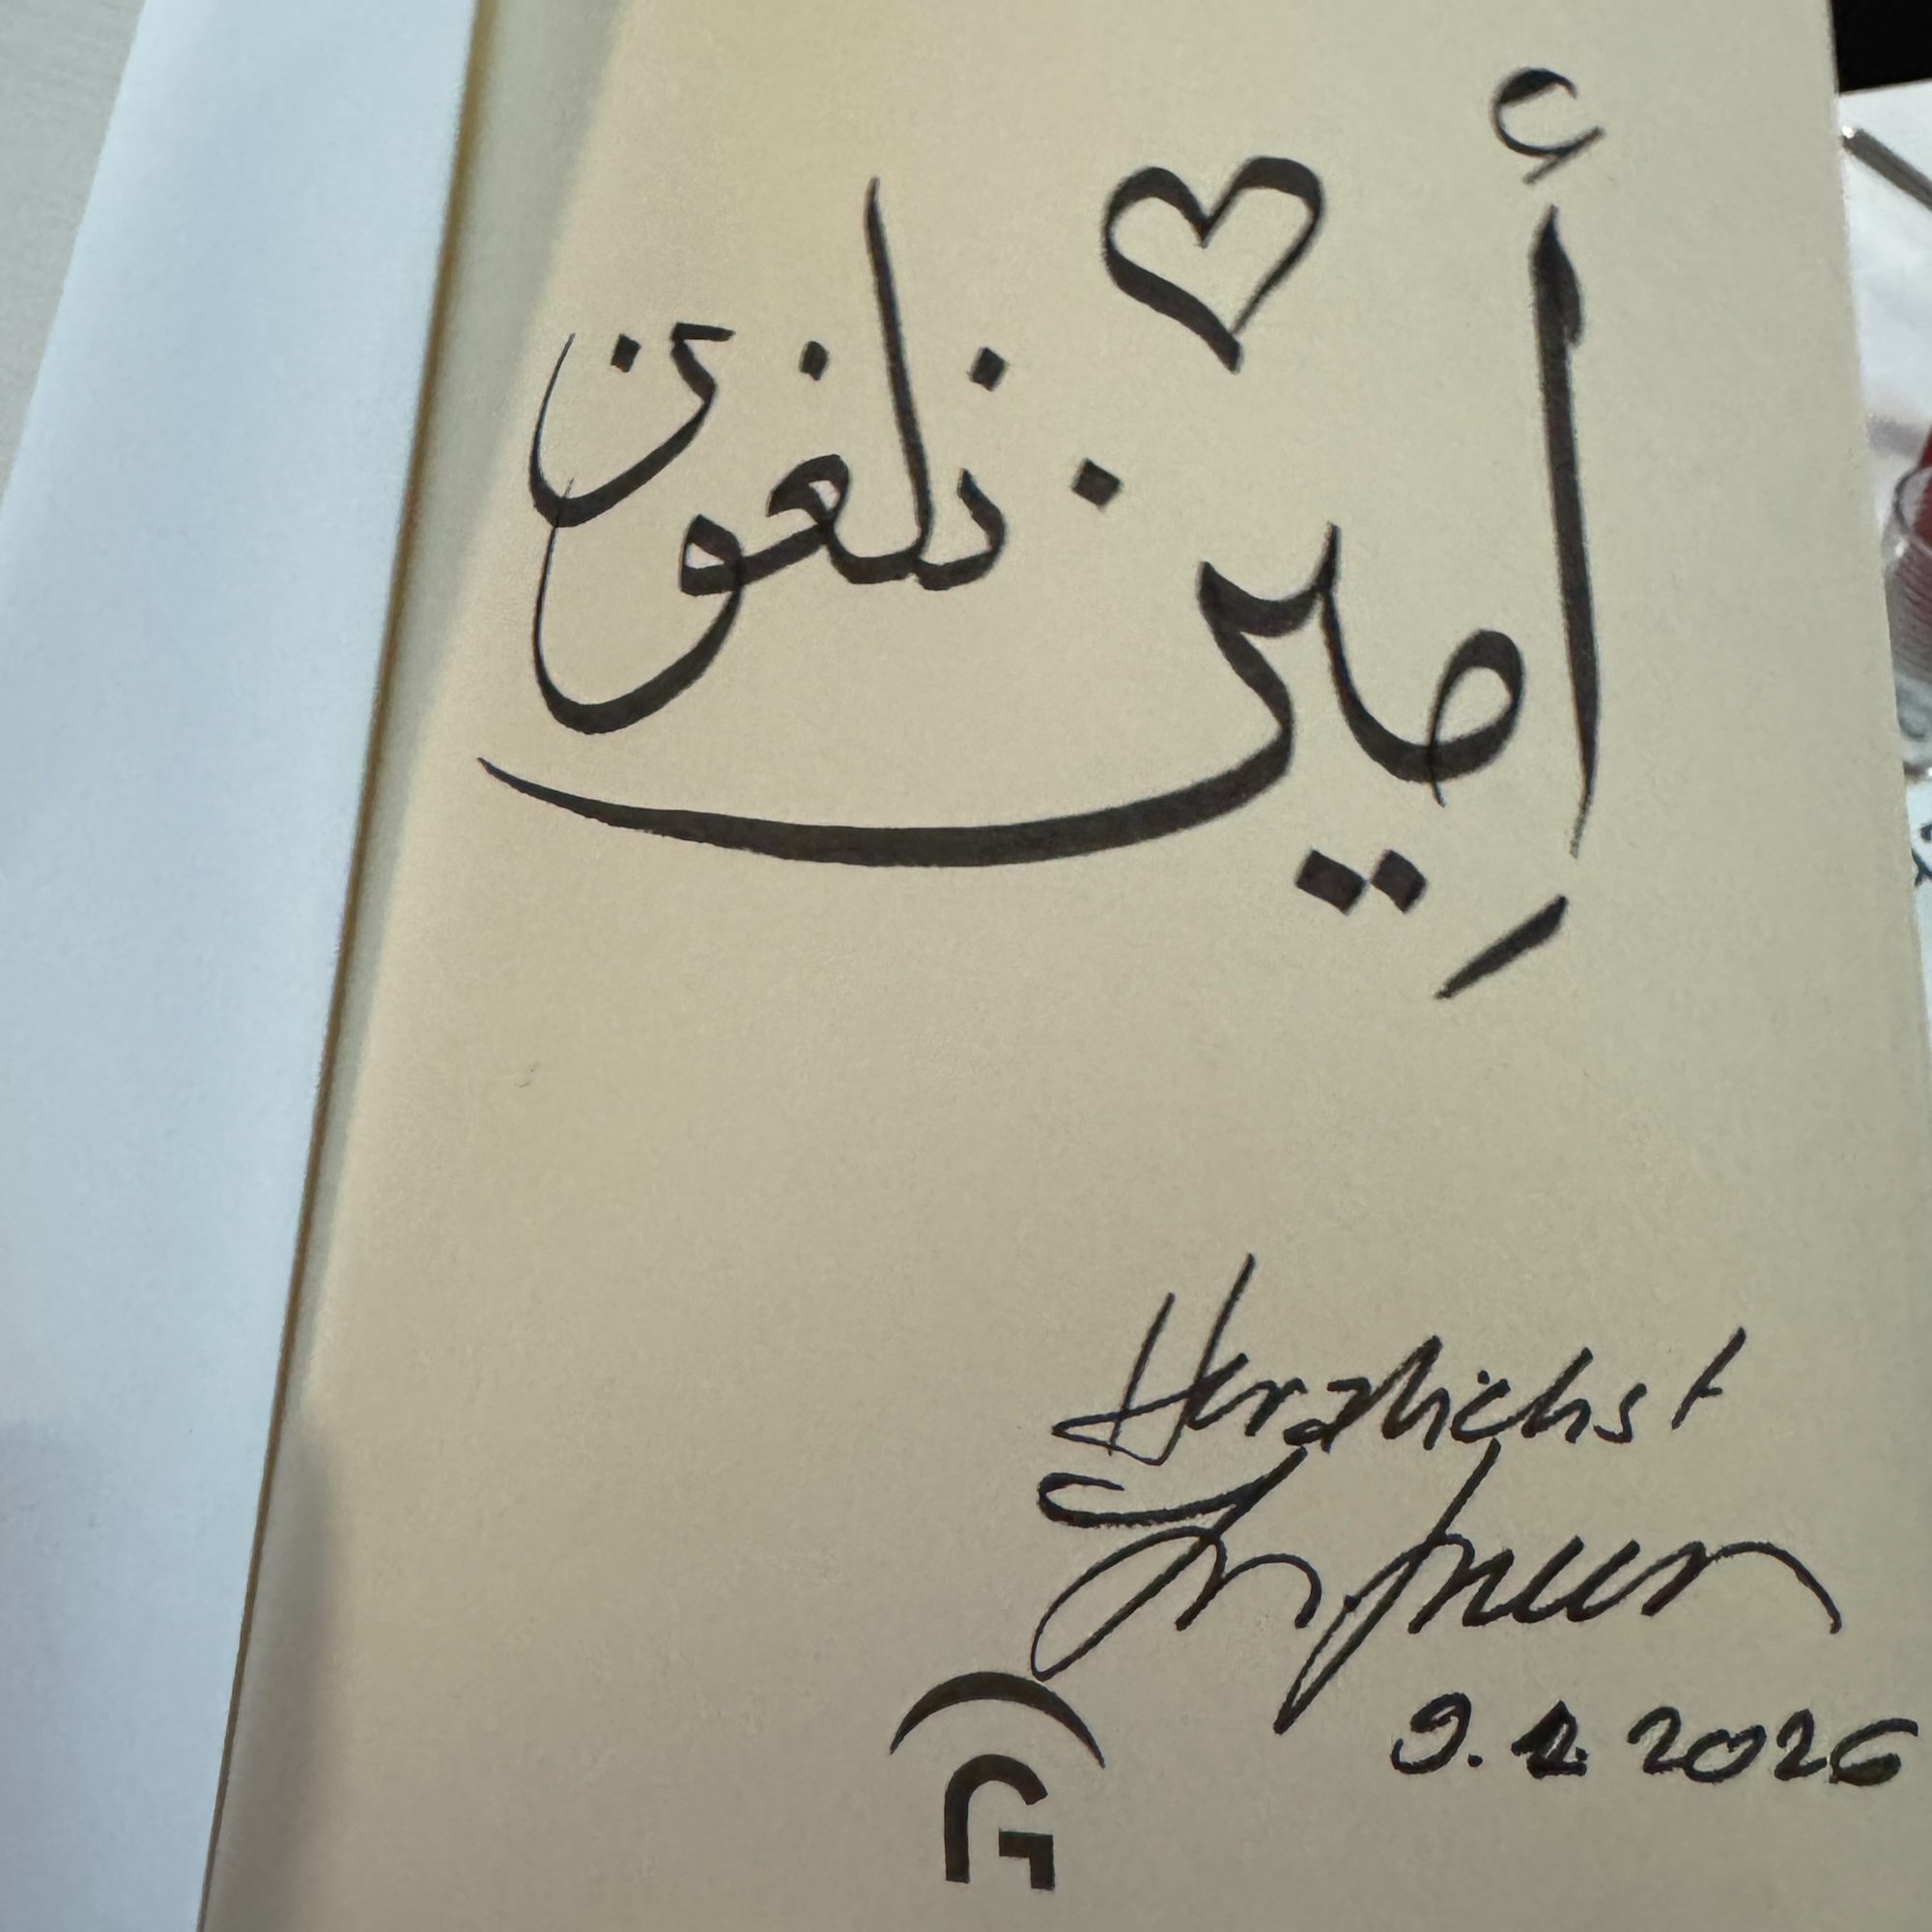 أِمين نلغون
Herzlichst
9. 2026